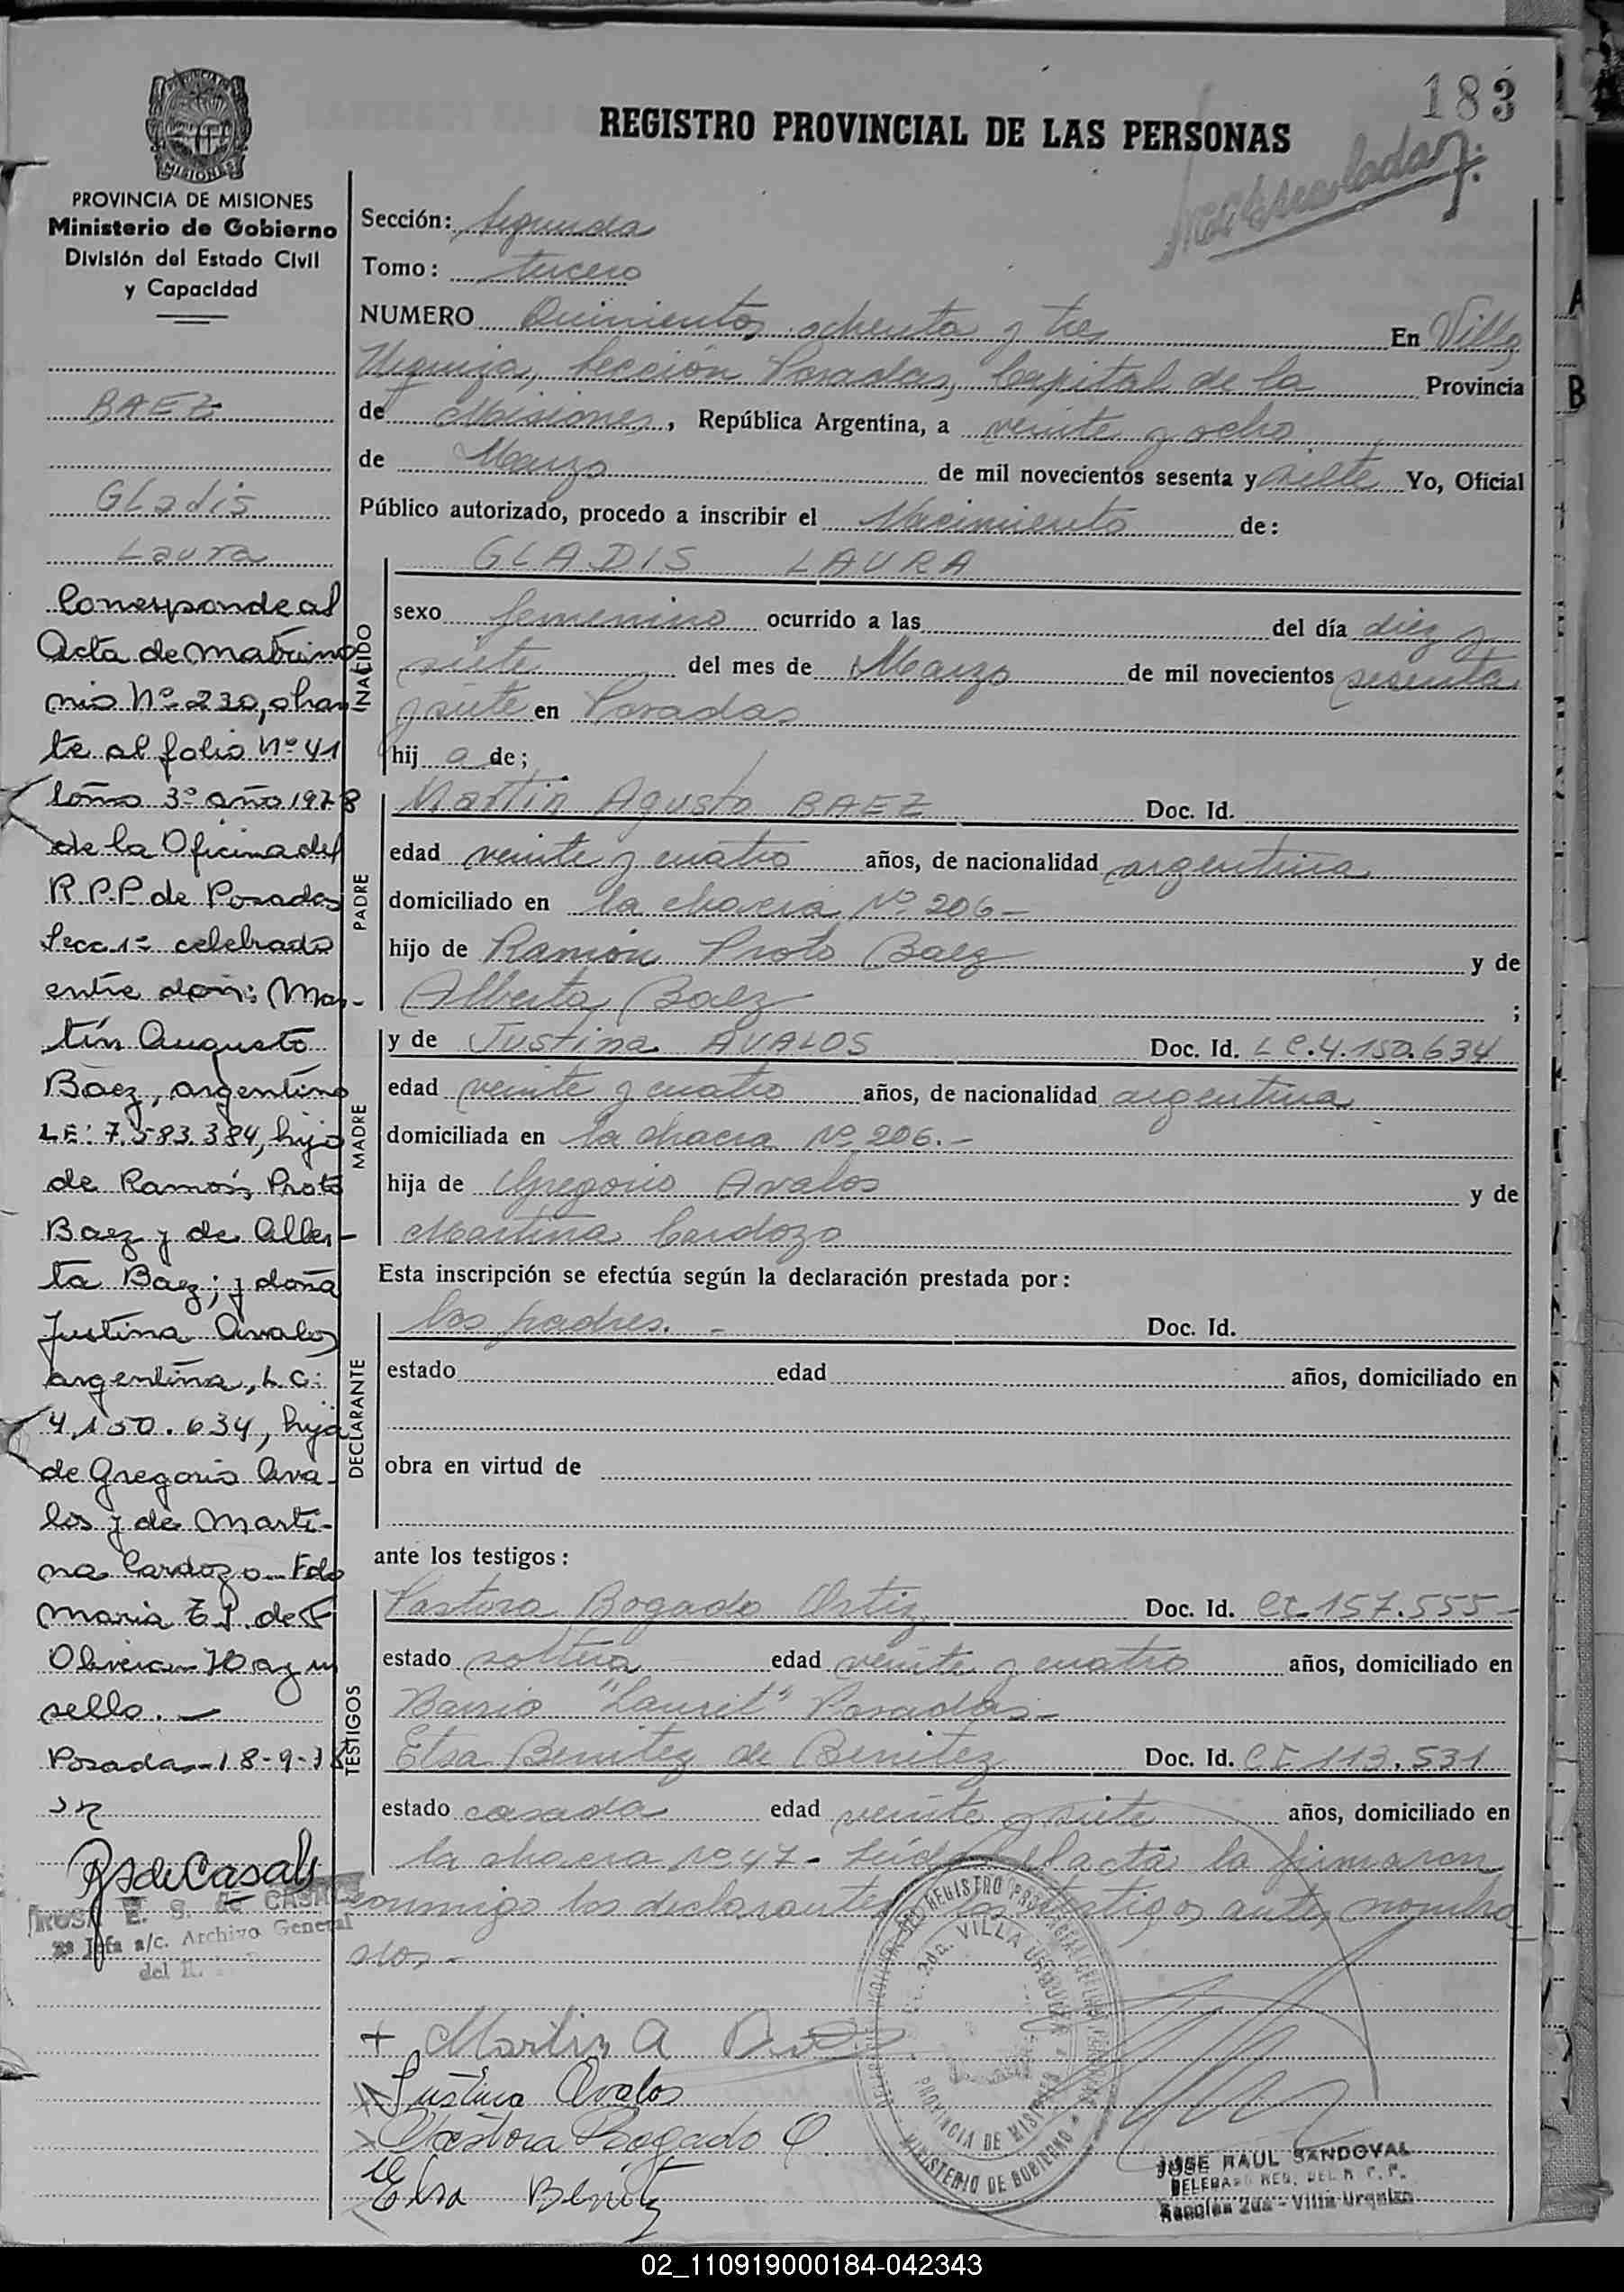 183
REGISTRO PROVINCIAL DE LAS PERSONAS
MISIONES
PROVINCIA DE MISIONES
Ministerio de Gobierno
División del Estado Civil
y Capacidad
BAEZ
GLadis
Laura
Corresponde al
Acta de Matrimo
nio Nº 230, obran
te al folio Nº 41
tomo 3º año 1978
de la Oficina del
R.P.P. de Posadas
Secc 1ª celebrado
entre don: Mar-
tín Augusto
Baez, argentino
LE: 7.583.384, hijo
de Ramón Proto
Baez y de Alber-
ta Baez; y doña
Justina Avalos
argentina, L.C:
4.150.634, hija
de Gregorio Ava-
los y de Marti-
na Cardozo. Fdo
Maria E. J. de F
Olivera. Hay un
sello.—
Posadas-18-9-78
RSdeCasals
ROSA E. S. de CASALS
Jefa a/c. Archivo General
Sección: Segunda
Tomo: tercero
NUMERO Quinientos ochenta y tres En Villa
Urquiza, Sección Posadas, Capital de la Provincia
de Misiones, República Argentina, a veinte y ocho
de Marzo de mil novecientos sesenta y siete Yo, Oficial
Público autorizado, procedo a inscribir el Nacimiento de:
INACIDO
GLADIS LAURA
sexo femenino ocurrido a las del día diez y
siete del mes de Marzo de mil novecientos sesenta
y siete en Posadas
hij a de;
PADRE
Martin Agusto BAEZ Doc. Id.
edad veinte y cuatro años, de nacionalidad argentina
domiciliado en la chacra Nº 206-
hijo de Ramón Proto Baez y de
Alberta Baez ;
MADRE
y de Justina AVALOS Doc. Id. L C.4.150.634
edad veinte y cuatro años, de nacionalidad argentina
domiciliada en la chacra Nº 206.-
hija de Gregorio Avalos y de
Martina Cardozo
Esta inscripción se efectúa según la declaración prestada por:
DECLARANTE
los padres.- Doc. Id.
estado edad años, domiciliado en
obra en virtud de
ante los testigos:
TESTIGOS
Pastora Bogado Ortiz Doc. Id. CI 157.555-
estado soltera edad veinte y cuatro años, domiciliado en
Barrio "Laurel" Posadas-
Elsa Benitez de Benitez Doc. Id. CI 113.531
estado casada edad veinte y siete años, domiciliado en
la chacra Nº 47- Leída el acta la firmaron
conmigo los declarantes los testigos antes nombra
dos-
Martin A Baez
Justina Avalos
Pastora Bogado O.
Elsa Benitez
2da. VILLA URQUIZA
PROVINCIA DE MISIONES
MINISTERIO DE GOBIERNO
JOSE RAUL SANDOVAL
Sección 2da - Villa Urquiza
02_110919000184-042343